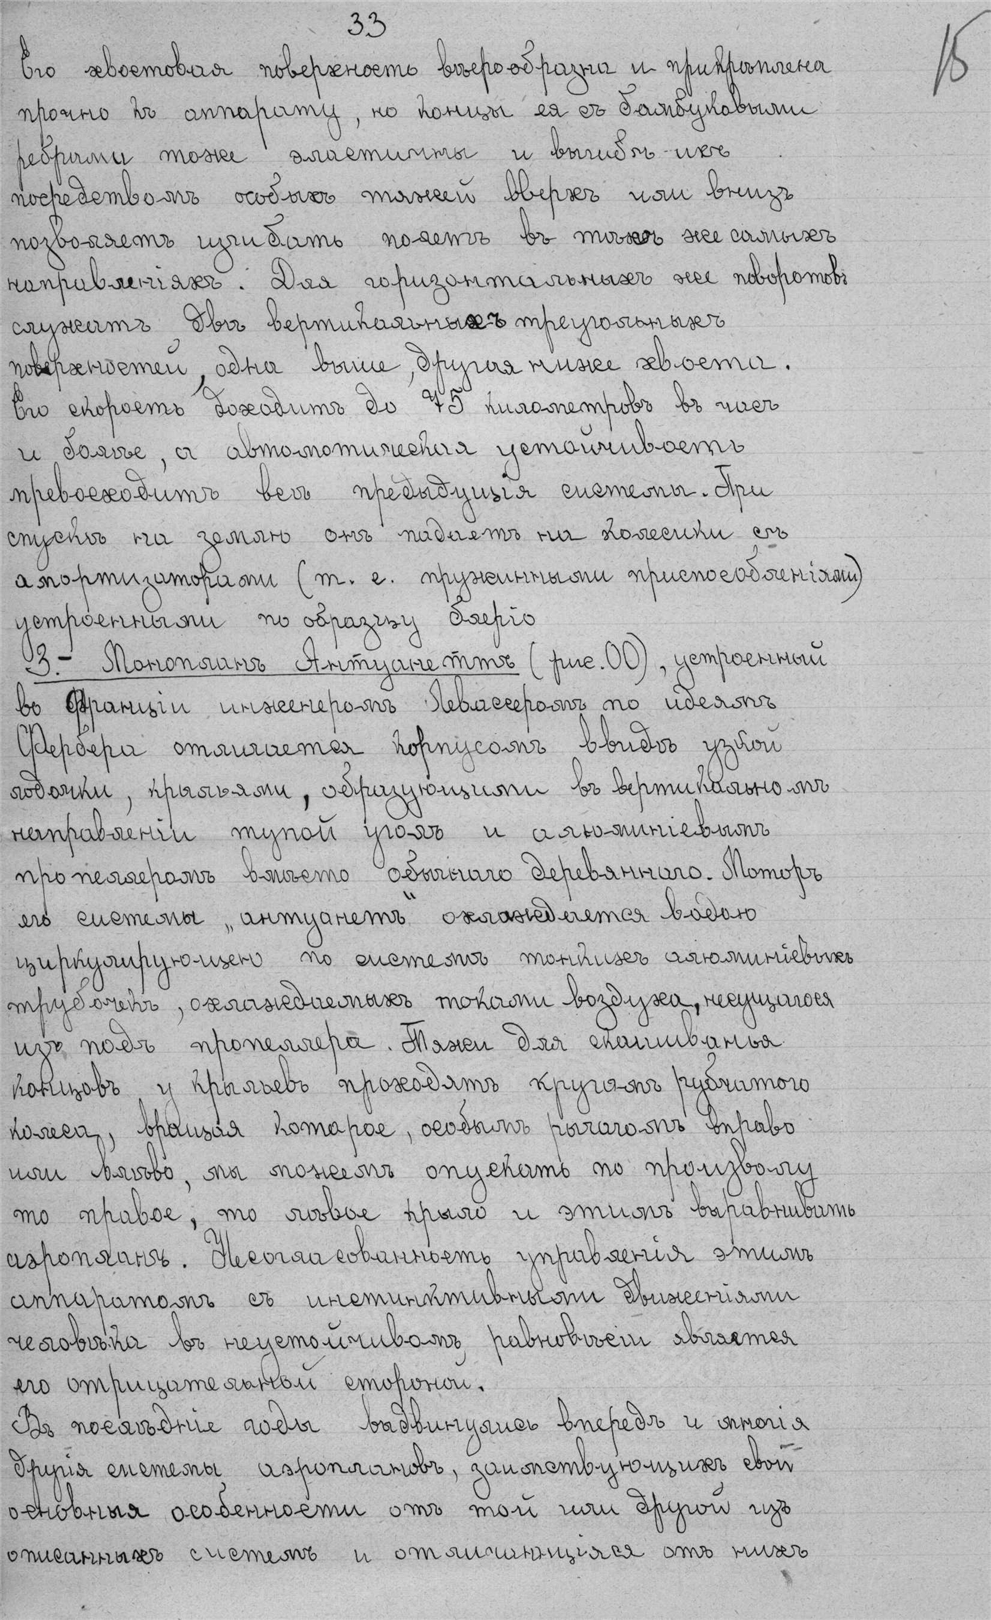 33
15
Его хвостовая поверхность вѣерообразна и прикрѣплена
прочно къ аппарату, но концы ея съ бамбуковыми
ребрами тоже эластичны и выгибъ ихъ
посредствомъ особыхъ тяжей вверхъ или внизъ
позволяетъ изгибать полетъ въ тѣхъ же самыхъ
направленіяхъ. Для горизонтальныхъ же поворотовъ
служатъ двѣ вертикальныхъ треугольныхъ
поверхностей, одна выше, другая ниже хвоста.
Его скорость доходитъ до 75 километровъ въ часъ
и болѣе, а автоматическая устойчивость
превосходитъ всѣ предыдущія системы. При
спускѣ на землю онъ падаетъ на колесики съ
амортизаторами (т. е. пружинными приспособленіями)
устроенными по образцу Блеріо
3.– Монопланъ Антуанеттъ (рис. 00), устроенный
во Франціи инженеромъ Левассеромъ по идеямъ
Фербера отличается корпусомъ ввидѣ узкой
лодочки, крыльями, образующими въ вертикальномъ
направленіи тупой уголъ и алюминіевымъ
пропеллеромъ вмѣсто обычнаго деревяннаго. Моторъ
его системы „антуанетъ" охлаждается водою
циркулирующею по системѣ тонкихъ алюминіевыхъ
трубочекъ, охлаждаемыхъ токами воздуха, несущагося
изъ подъ пропеллера. Тяжи для скашиванья
концовъ у крыльевъ проходятъ кругомъ рубчатого
колеса, вращая которое, особымъ рычагомъ вправо
или влѣво, мы можемъ опускать по произволу
то правое, то лѣвое крыло и этимъ выравнивать
аэропланъ. Несогласованность управленія этимъ
аппаратомъ съ инстинктивными движеніями
человѣка въ неустойчивомъ равновѣсіи является
его отрицательной стороной.
Въ послѣдніе годы выдвинулись впередъ и многія
другія системы аэроплановъ, заимствующихъ свои
основныя особенности отъ той или другой изъ
описанныхъ системъ и отличающіяся отъ нихъ